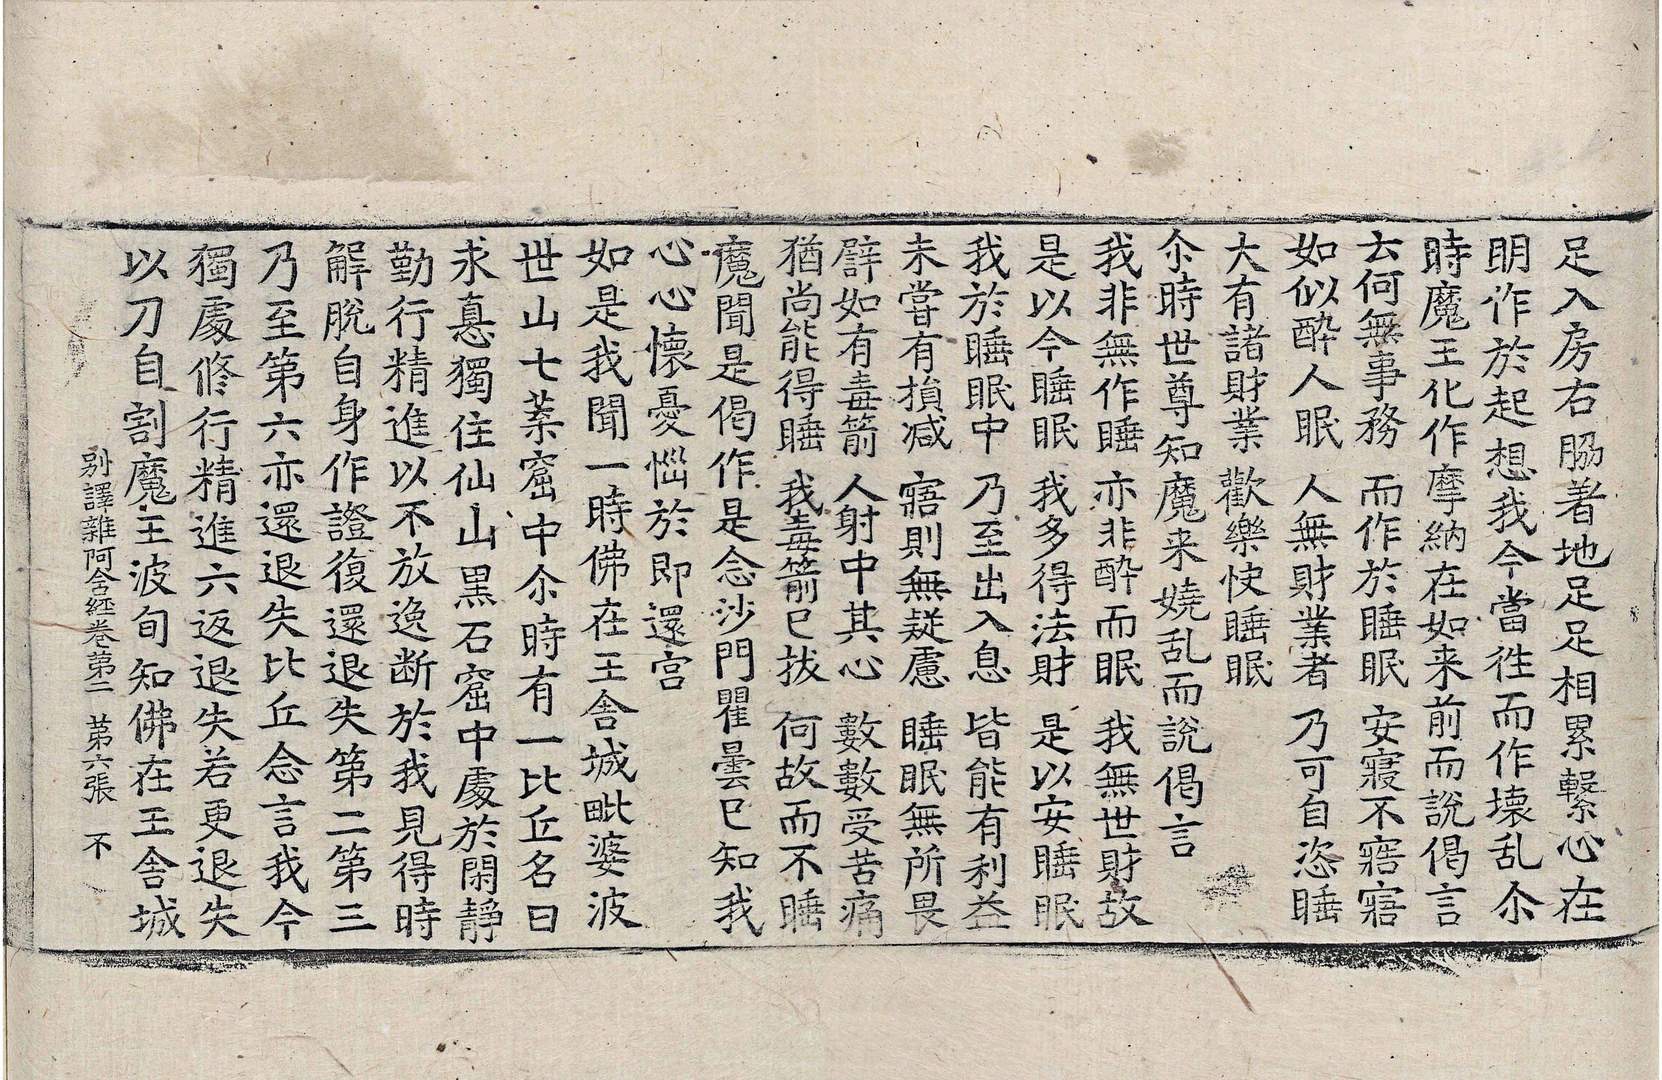 足入房右脇着地足足相累繫心在
明作於起想我今當徃而作壊乱尒
時魔王化作摩納在如来前而說偈言
去何無事務 而作於睡眠 安寢不寤寤
如似醉人眠 人無財業者 乃可自恣睡
大有諸財業 歡樂快睡眠
尒時世尊知魔来嬈乱而說偈言
我非無作睡 亦非醉而眠 我無世財故
是以今睡眠 我多得法財 是以安睡眠
我於睡眠中 乃至出入息 皆能有利益
未嘗有損减 寤則無疑慮 睡眠無所畏
譬如有毒箭 人射中其心 數數受苦痛
猶尚能得睡 我毒箭已拔 何故而不睡
魔聞是偈作是念沙門瞿曇已知我
心心懷憂惱於即還宫
如是我聞一時佛在王舎城毗婆波
世山七葉窟中尒時有一比丘名曰
求悳獨住仙山黒石窟中處於閑静
勤行精進以不放逸断於我見得時
解脫自身作證復還退失第二第三
乃至第六亦還退失比丘念言我今
獨處修行精進六返退失若更退失
以刀自割魔王波旬知佛在王舎城
别譯雜阿含經卷第二 第六張 不